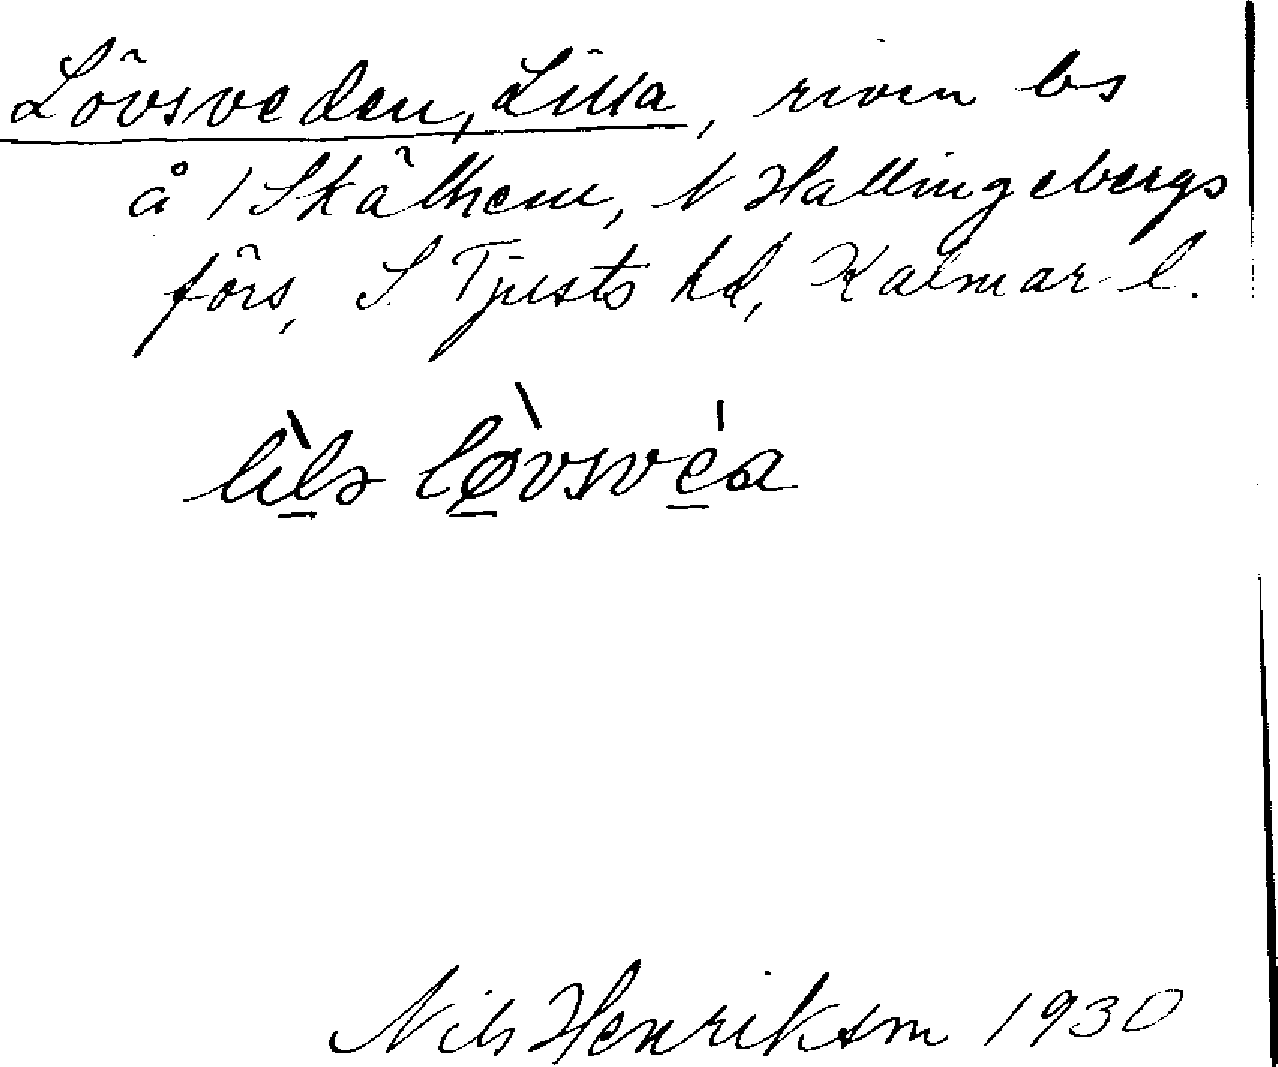 Lövsveden, Lilla, riven bs
å 1 Skälhem, N Hallingebergs
förs, S Tjusts hd, Kalmar l.
lìlə lø̀vsvéa
Nils Henriksm 1930